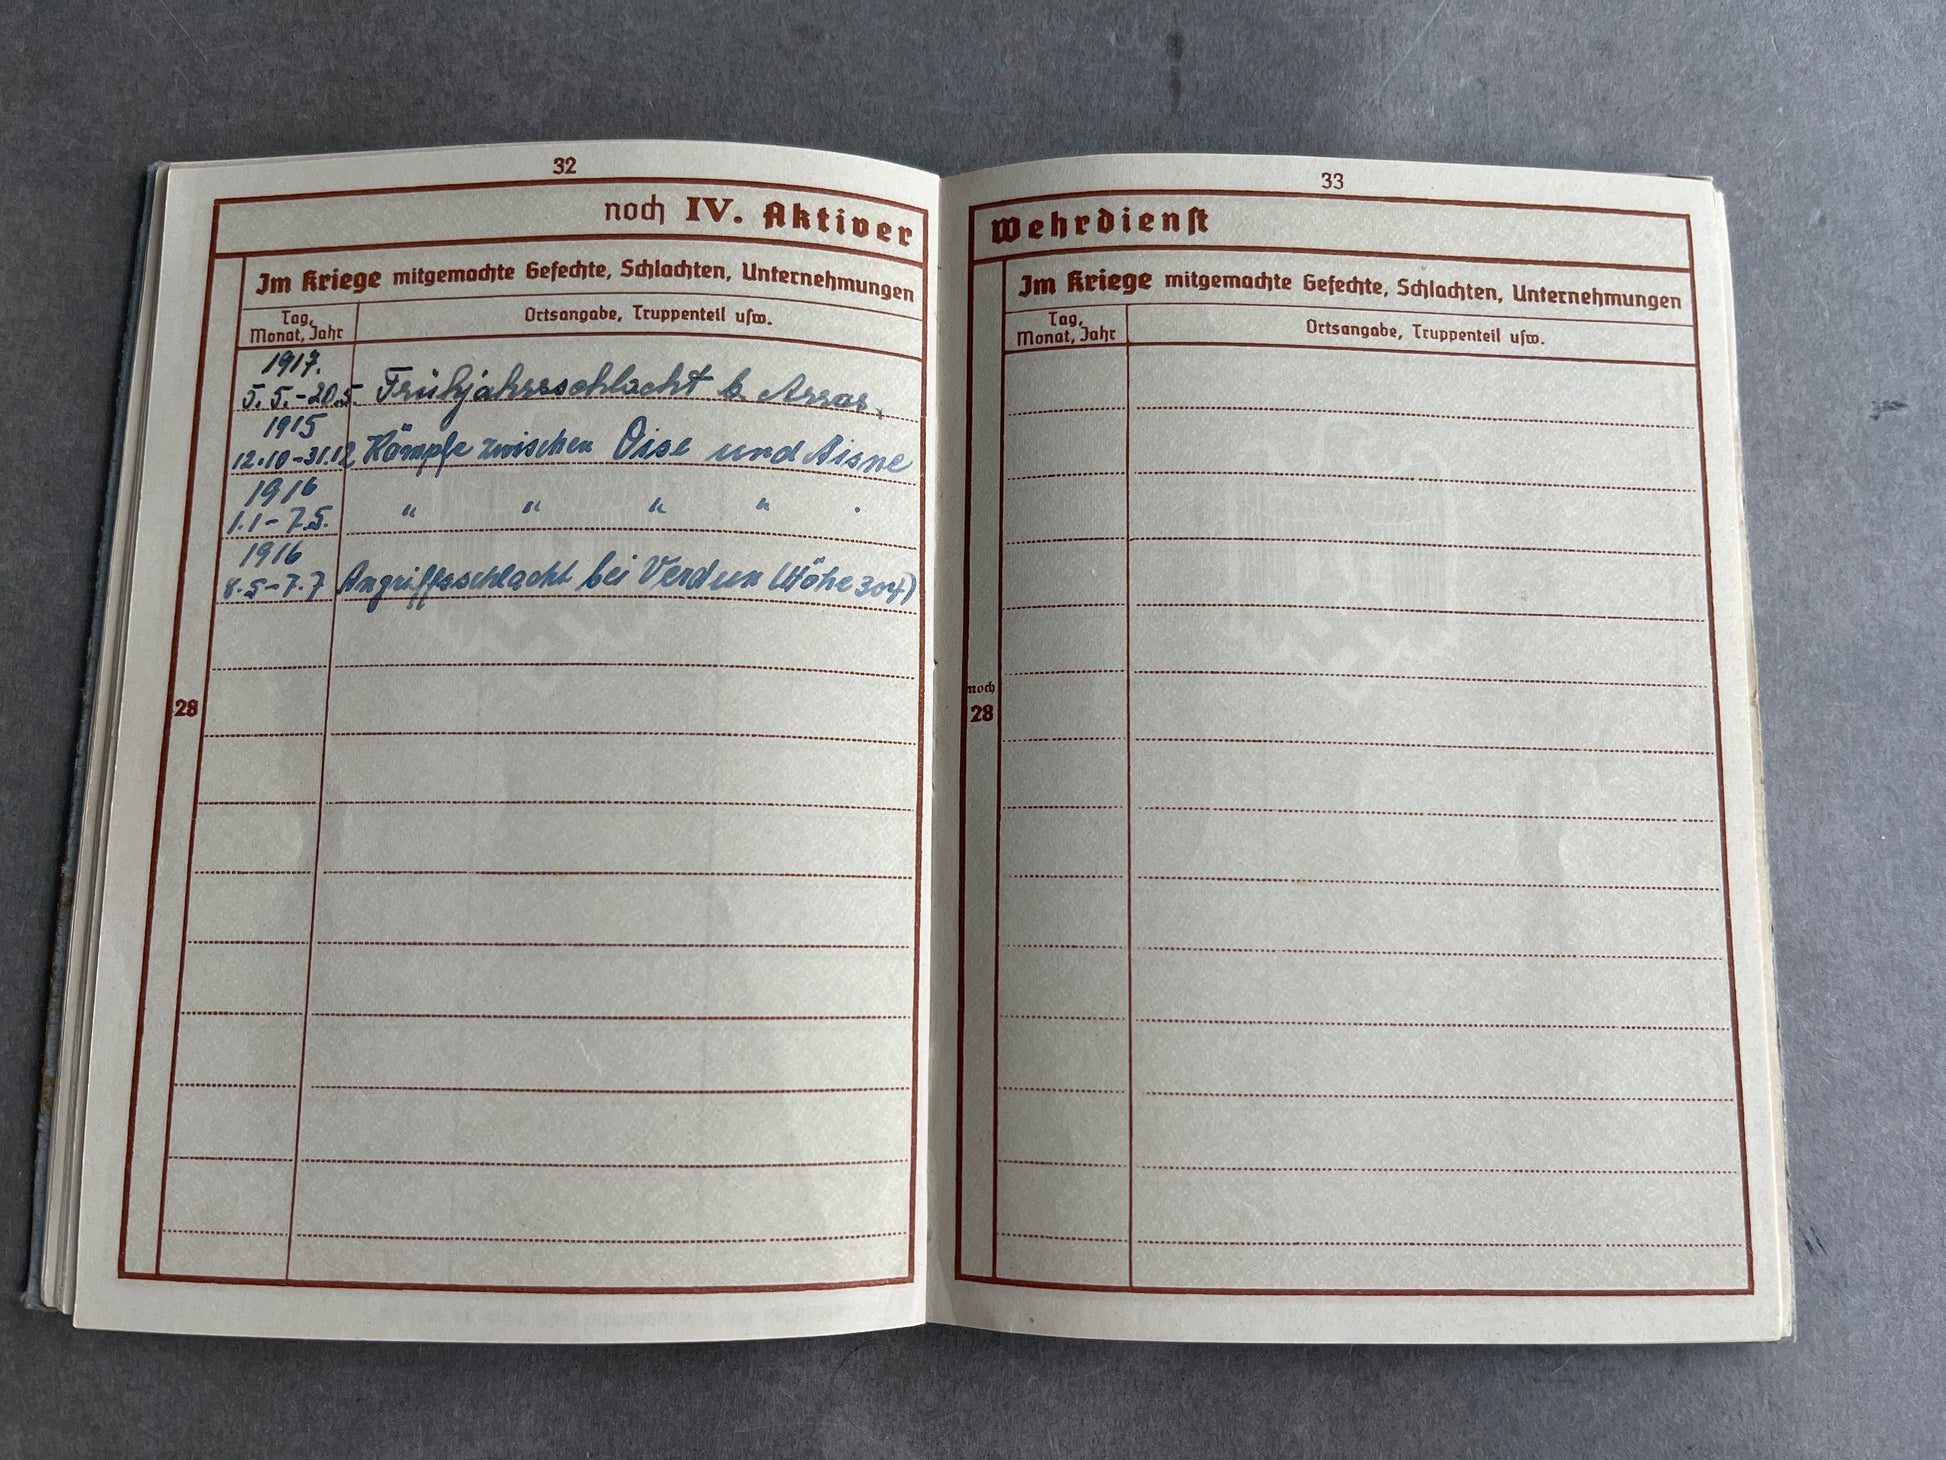 32
noch IV. Aktiver
Im Kriege mitgemachte Gefechte, Schlachten, Unternehmungen
Tag, Monat, Jahr
Ortsangabe, Truppenteil usw.
1917.
5.5.-20.5. Frühjahrsschlacht b. Arras.
1915
12.10-31.12 Kämpfe zwischen Oise und Aisne
1916
1.1-7.5. " " " " .
1916
8.5-7.7 Angriffsschlacht bei Verdun (Höhe 304)
28
33
Wehrdienst
Im Kriege mitgemachte Gefechte, Schlachten, Unternehmungen
Tag, Monat, Jahr
Ortsangabe, Truppenteil usw.
noch
28